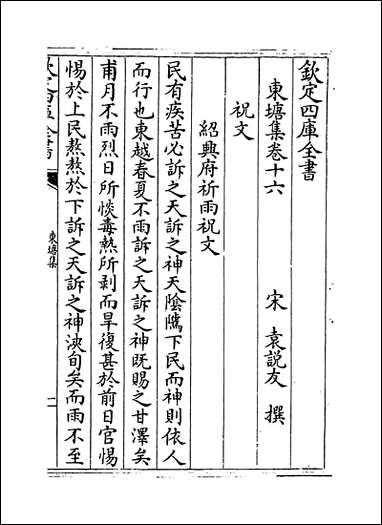 欽定四庫全書
東塘集卷十六
宋 袁說友 撰
祝文
紹興府祈雨祝文
民有疾苦必訴之天訴之神天陰隲下民而神則依人
而行也東越春夏不雨訴之天訴之神既賜之甘澤矣
甫月不雨烈日所惔毒熱所剥而旱復甚於前日官惕
惕於上民熬熬於下訴之天訴之神浹旬矣而雨不至
欽定四庫全書
東塘集